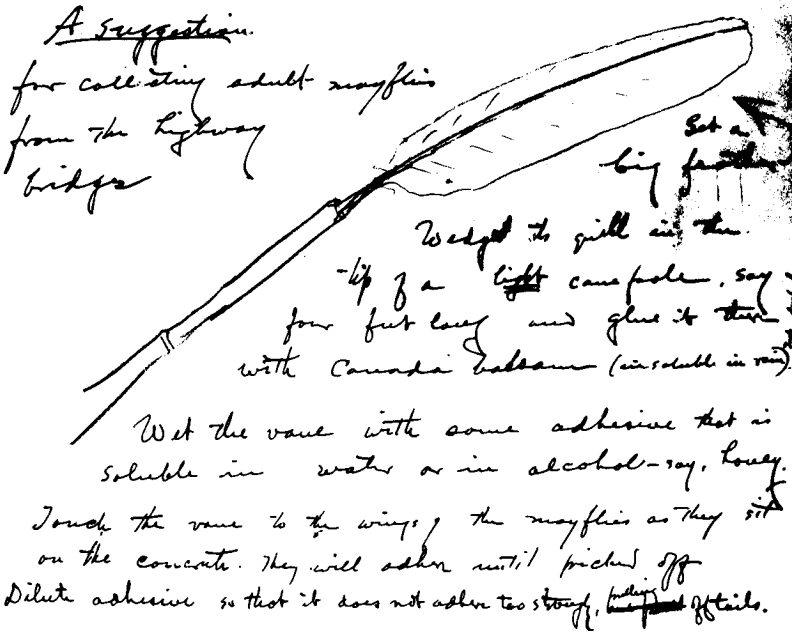 A suggestion.
for collecting adult mayflies
from the highway
bridge
Get a
big feather
Wedge its quill in the
tip of a light cane pole, say
four feet long and glue it there
with Canada balsam (insoluble in rain)
Wet the vane with some adhesive that is
soluble in water or in alcohol - say, honey.
Touch the vane to the wings of the mayflies as they sit
on the concrete. They will adhere until picked off
Dilute adhesive so that it does not adhere too strongly, pulling off tails.